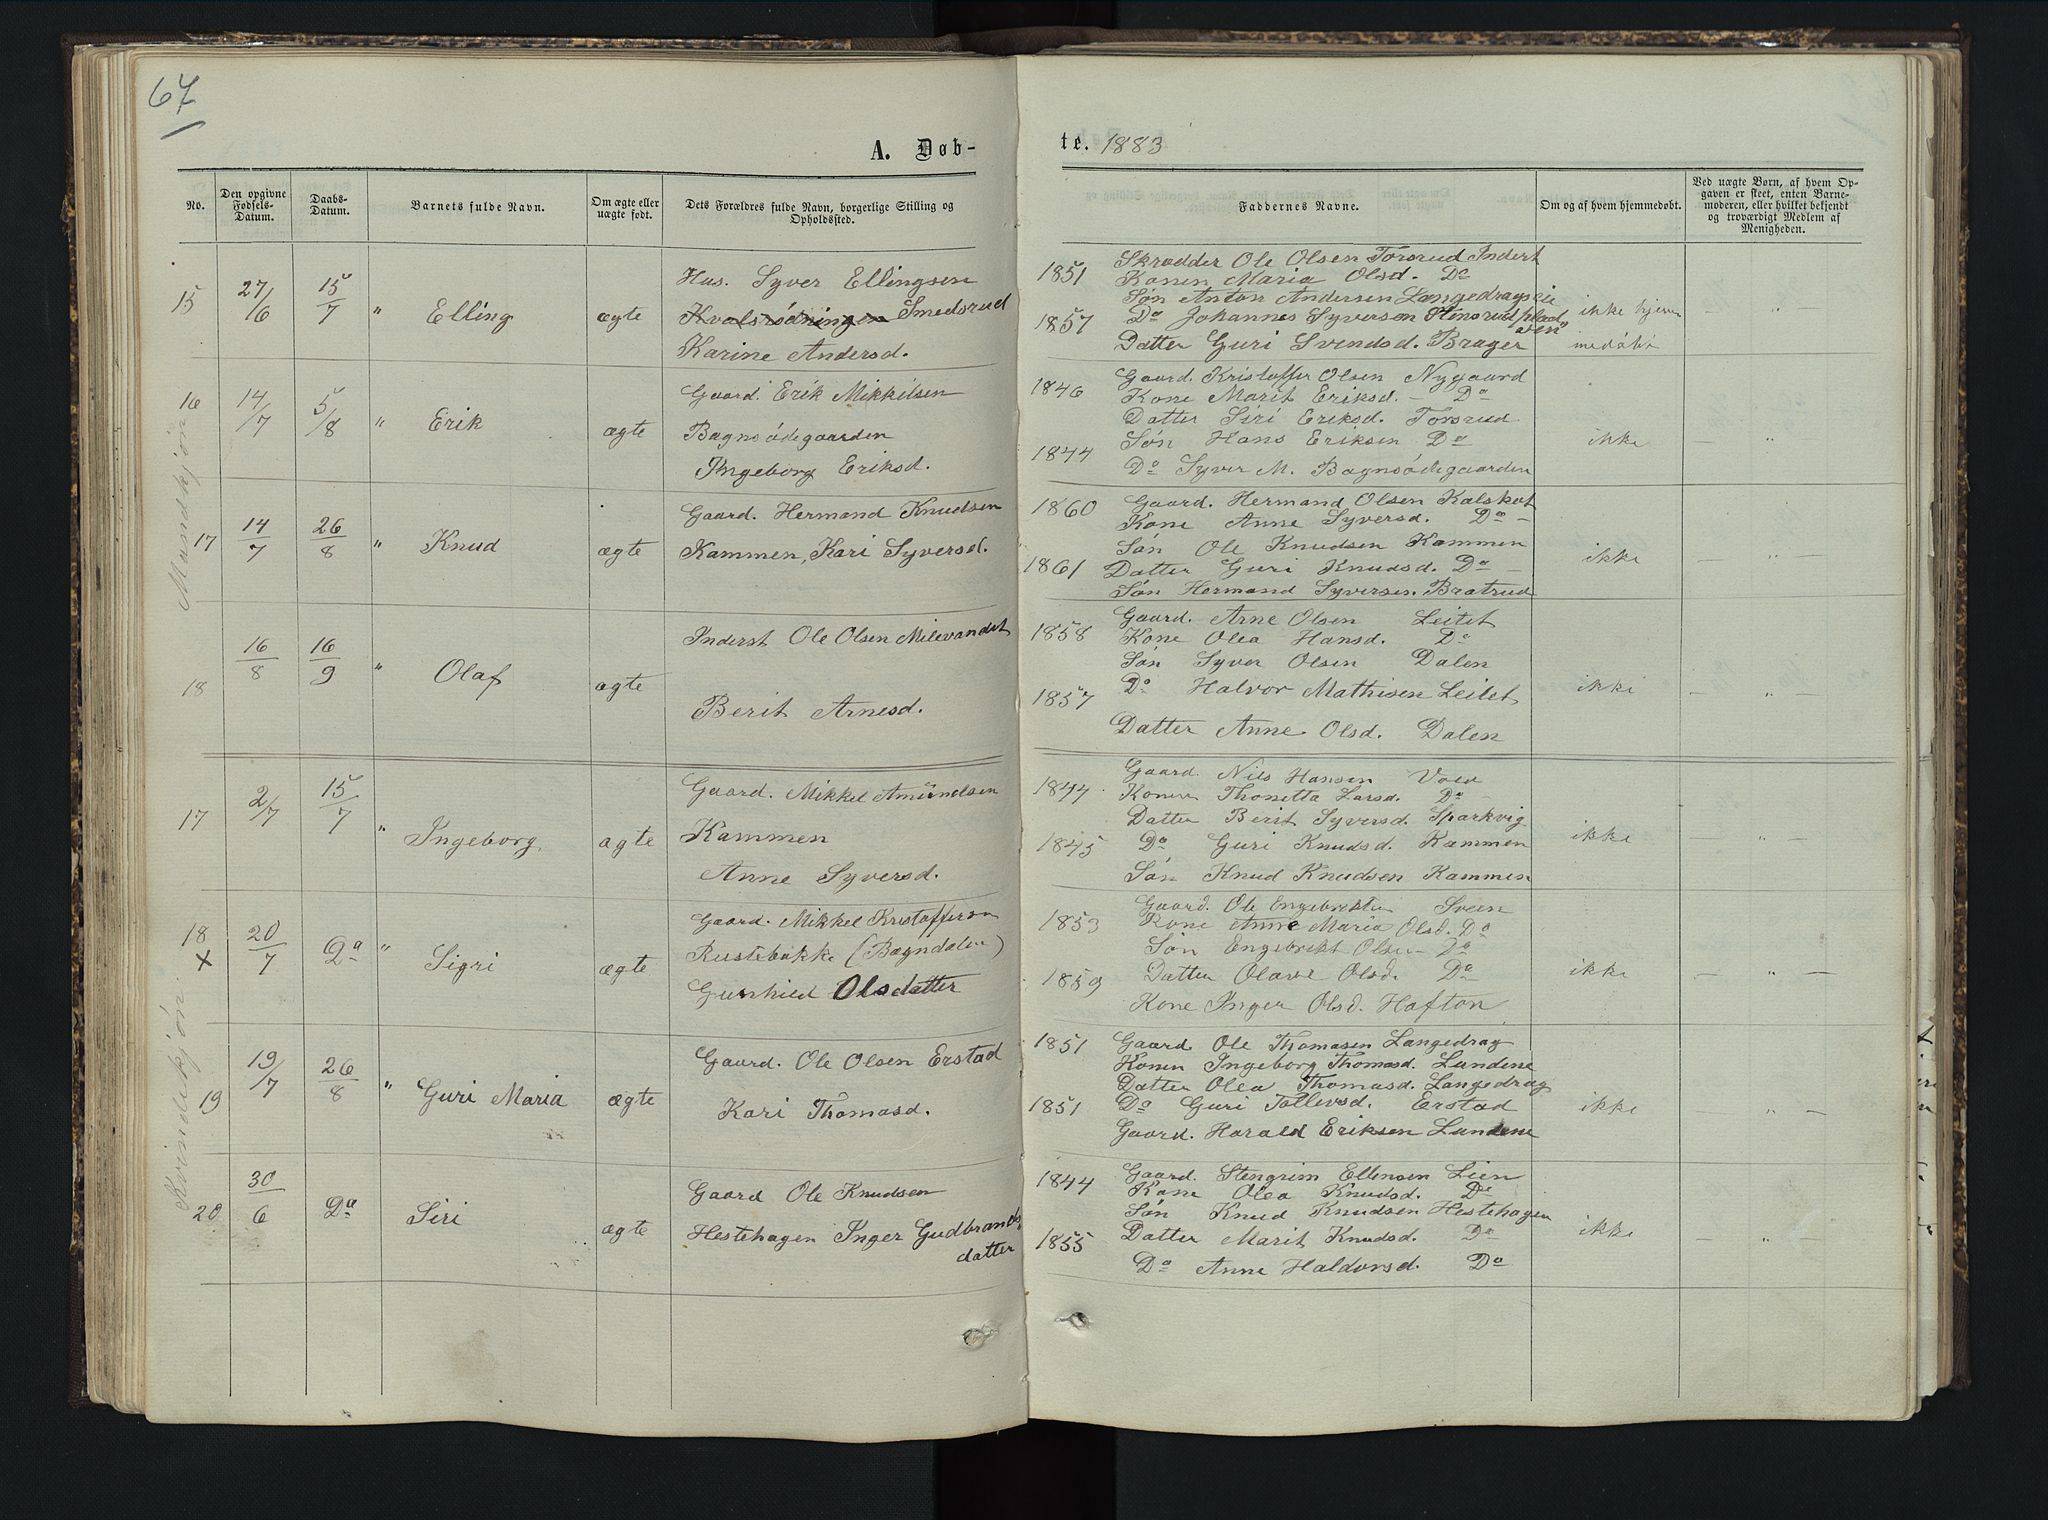 67
A. Døb-
No.
Den opgivne Fødsels-Datum.
Daabs-Datum.
Barnets fulde Navn.
Om ægte eller uægte født.
Dets Forældres fulde Navn, borgerlige Stilling og Opholdssted.
Mandkjøn
15 27/6 15/7 " Elling ægte
Hus. Syver Ellingsen
Kvalsrødningen Smedsrud
Karine Andersd.
16 14/7 5/8 " Erik ægte
Gaard. Erik Mikkelsen
Bagnsødegaarden
Ingeborg Eriksd.
17 14/7 26/8 " Knud ægte
Gaard. Hermand Knudsen
Kammen, Kari Syversd.
18 16/8 16/9 " Olaf ægte
Inderst Ole Olsen Milevandet
Berit Arnesd.
Kvindekjøn
17 2/7 15/7 " Ingeborg, ægte
Gaard. Mikkel Amundsen
Kammen
Anne Syversd.
18 x 20/7 Do " Sigri ægte
Gaard. Mikkel Kristoffersen
Rustebakke (Bagndalen)
Gunhild Olsdatter
19 19/7 26/8 " Guri Maria ægte
Gaard. Ole Olsen Erstad
Kari Thomasd.
20 30/6 Do Siri ægte
Gaard Ole Knudsen
Hestehagen Inger Gudbrands
datter
te. 1883
Faddernes Navne.
Om og af hvem hjemmedøbt.
Ved uægte Børn, af hvem Op-
gaven er skeet, enten Barne-
moderen, eller hvilket bekjendt
og troværdigt Medlem af
Menigheden.
1851 Skrædder Ole Olsen Torsrud Inderst
Konen Maria Olsd. Do
Søn Anton Andersen Langedrageie
1857 Do Johannes Syversen Stensrudplad
sen
Datter Guri Svendsd. Brager
ikke hjem
medøbt — " —
1846 Gaard. Kristoffer Olsen Nygaard
Kone Marit Eriksd. — Do
Datter Siri Eriksd. Torsrud
1844 Søn Hans Eriksen Do
Do Syver M. Bagnsødegaarden
ikke — " —
1860 Gaard. Hermand Olsen Kalskot
Kone Anne Syversd. Do —
Søn Ole Knudsen Kammen
1861 Datter Guri Knudsd. Do —
Søn Hermand Syversen. Bratrud
ikke — " —
1858 Gaard. Arne Olsen Leitet
Kone Olea Hansd. Do
Søn Syver Olsen Dalen
1857 Do Halvor Mathisen Leitet
Datter Anne Olsd. Dalen
ikke — " —
1844 Gaard. Nils Hansen Vold
Konen Thonetta Larsd. Do —
Datter Berit Syversd. Sparkvig
1845 Do Guri Knudsd. Kammen
Søn Knud Knudsen Kammen
ikke — " —
1853 Gaard. Ole Engebretsen Sveen
Kone Anne Maria Olsd. Do
Søn Engebrikt Olsen — Do
1859 Datter Olave Olsd. Do
Kone Inger Olsd. Hafton
ikke — " —
1851 Gaard. Ole Thomasen Langedrag
Konen Ingeborg Thomasd. Lundene
Datter Olea Thomasd. Langedrag
1851 Do Guri Tollevsd. Erstad
Gaard. Harald Eriksen Lundene
ikke — " —
1844 Gaard. Stengrim Ellensen Lien
Kone Olea Knudsd. Do
Søn Knud Knudsen Hestehagen
1855 Datter Marit Knudsd. Do
Do Anne Haldorsd. Do
ikke — " —